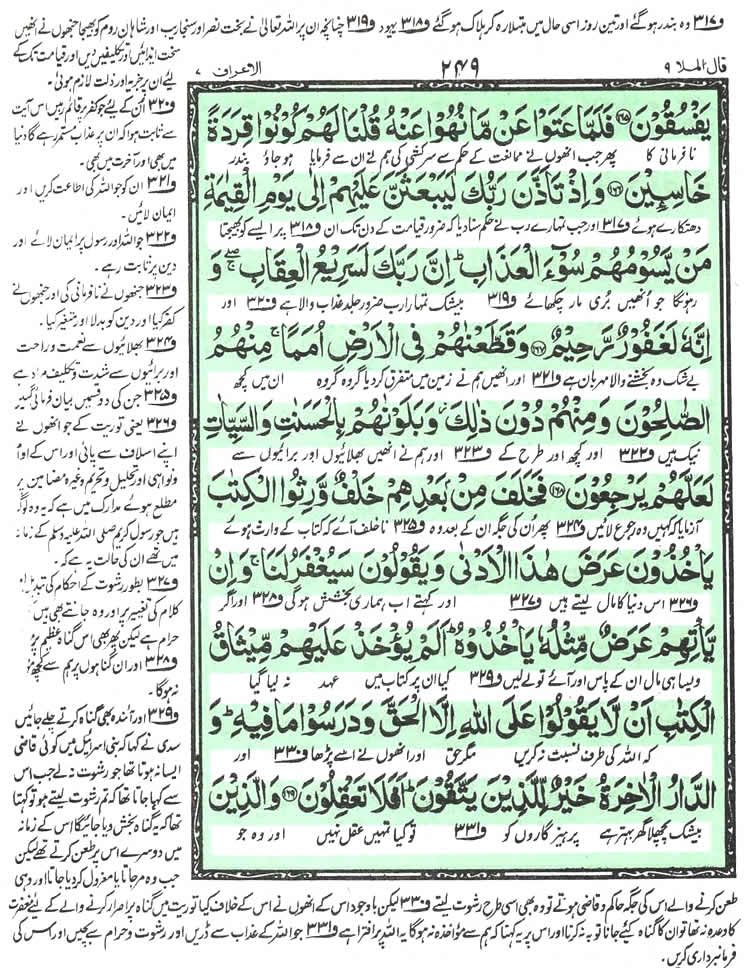 و۳۱۷ وہ بندر ہوگئے اور تین روز اسی حال میں مبتلا رہ کر ہلاک ہوگئے و۳۱۸ یہود و۳۱۹ چنانچہ ان پر اللہ تعالیٰ نے بخت نصر اور سنجاریب اور شاہانِ روم کو بھیجا جنھوں نے انھیں
سخت ایذائیں اور تکلیفیں دیں اور قیامت تک کے
لیے ان پر جزیہ اور ذلت لازم ہوئی۔
قال الملا ۹
۲۴۹
الاعراف ۷
يَفْسُقُوْنَ ﴿۱۶۵﴾ فَلَمَّا عَتَوْا عَنْ مَّا نُهُوْا عَنْهُ قُلْنَا لَهُمْ كُوْنُوْا قِرَدَةً
نافرمانی کا پھر جب انھوں نے ممانعت کے حکم سے سرکشی کی ہم نے ان سے فرمایا ہو جاؤ بندر
خَاسِـِٕيْنَ ﴿۱۶۶﴾ وَاِذْ تَاَذَّنَ رَبُّكَ لَيَبْعَثَنَّ عَلَيْهِمْ اِلٰى يَوْمِ الْقِيٰمَةِ
دھتکارے ہوئے و۳۱۷ اور جب تمہارے رب نے حکم سنا دیا کہ ضرور قیامت کے دن تک ان و۳۱۸ پر ایسے کو بھیجتا
مَنْ يَّسُوْمُهُمْ سُوْٓءَ الْعَذَابِ ؕ اِنَّ رَبَّكَ لَسَرِيْعُ الْعِقَابِ ۖۚ وَ
رہوں گا جو انھیں بُری مار چکھائے و۳۱۹ بیشک تمہارا رب ضرور جلد عذاب والا ہے و۳۲۰ اور
اِنَّهٗ لَغَفُوْرٌ رَّحِيْمٌ ﴿۱۶۷﴾ وَقَطَّعْنٰهُمْ فِى الْاَرْضِ اُمَمًا ۚ مِنْهُمُ
بے شک وہ بخشنے والا مہربان ہے و۳۲۱ اور انھیں ہم نے زمین میں متفرق کردیا گروہ گروہ ان میں کچھ
الصّٰلِحُوْنَ وَمِنْهُمْ دُوْنَ ذٰلِكَ ۫ وَبَلَوْنٰهُمْ بِالْحَسَنٰتِ وَالسَّيِّاٰتِ
نیک ہیں و۳۲۲ اور کچھ اور طرح کے و۳۲۳ اور ہم نے انھیں بھلائیوں اور برائیوں سے
لَعَلَّهُمْ يَرْجِعُوْنَ ﴿۱۶۸﴾ فَخَلَفَ مِنْۢ بَعْدِهِمْ خَلْفٌ وَّرِثُوا الْكِتٰبَ
آزمایا کہ کہیں وہ رجوع لائیں و۳۲۴ پھر ان کی جگہ ان کے بعد وہ و۳۲۵ ناخلف آئے کہ کتاب کے وارث ہوئے
يَاْخُذُوْنَ عَرَضَ هٰذَا الْاَدْنٰى وَيَقُوْلُوْنَ سَيُغْفَرُ لَنَا ۚ وَاِنْ
و۳۲۶ اس دنیا کا مال لیتے ہیں و۳۲۷ اور کہتے اب ہماری بخشش ہوگی و۳۲۸ اور اگر
يَّاْتِهِمْ عَرَضٌ مِّثْلُهٗ يَاْخُذُوْهُ ؕ اَلَمْ يُؤْخَذْ عَلَيْهِمْ مِّيْثَاقُ
ویسا ہی مال ان کے پاس اور آئے تو لے لیں و۳۲۹ کیا ان پر کتاب میں عہد نہ لیا گیا
الْكِتٰبِ اَنْ لَّا يَقُوْلُوْا عَلَى اللّٰهِ اِلَّا الْحَقَّ وَدَرَسُوْا مَا فِيْهِ ؕ وَ
کہ اللہ کی طرف نسبت نہ کریں مگر حق اور انھوں نے اسے پڑھا و۳۳۰ اور
الدَّارُ الْاٰخِرَةُ خَيْرٌ لِّلَّذِيْنَ يَتَّقُوْنَ ؕ اَفَلَا تَعْقِلُوْنَ ﴿۱۶۹﴾ وَالَّذِيْنَ
بیشک پچھلا گھر بہتر ہے پرہیزگاروں کو و۳۳۱ تو کیا تمہیں عقل نہیں اور وہ جو
و۳۲۰ ان کے لیے جو کفر پر قائم رہیں اس آیت
سے ثابت ہوا کہ ان پر عذاب مستمر رہے گا دنیا
میں بھی اور آخرت میں بھی۔
و۳۲۱ ان کو جو اللہ کی اطاعت کریں اور
ایمان لائیں۔
و۳۲۲ جو اللہ اور رسول پر ایمان لائے اور
دین پر ثابت رہے۔
و۳۲۳ جنھوں نے نافرمانی کی اور جنھوں نے
کفر کیا اور دین کو بدلا اور متغیر کیا۔
و۳۲۴ بھلائیوں سے نعمت و راحت
اور برائیوں سے شدت و تکلیف مراد ہے
و۳۲۵ جن کی دو قسمیں بیان فرمائی گئیں
و۳۲۶ یعنی توریت کے جو انھوں نے
اپنے اسلاف سے پائی اور اس کے اوامر
و نواہی اور تحلیل و تحریم وغیرہ مضامین پر
مطلع ہوئے مدارک میں ہے کہ یہ وہ لوگ
ہیں جو رسول کریم صلی اللہ علیہ وسلم کے زمانہ
میں تھے ان کی حالت یہ ہے کہ۔
و۳۲۷ بطور رشوت کے احکام کی تبدیل اور
کلام کی تغییر پر اور وہ جانتے بھی ہیں کہ
حرام ہے لیکن پھر بھی اس گناہ عظیم پر
و۳۲۸ اور ان گناہوں پر ہم سے کچھ مؤ
نہ ہوگا۔
و۳۲۹ اور آئندہ بھی گناہ کرتے چلے جائیں
سدی نے کہا کہ بنی اسرائیل میں کوئی قاضی
ایسا نہ ہوتا تھا جو رشوت نہ لے جب اس
سے کہا جاتا تھا کہ تم رشوت لیتے ہو تو کہتا
تھا کہ یہ گناہ بخش دیا جائیگا اس کے زمانہ
میں دوسرے اس پر طعن کرتے تھے لیکن
جب وہ مرجاتا یا معزول کردیا جاتا اور وہی
طعن کرنے والے اس کی جگہ حاکم و قاضی ہوتے تو وہ بھی اسی طرح رشوت لیتے و۳۳۰ لیکن باوجود اس کے انھوں نے اس کے خلاف کیا توریت میں گناہ پر اصرار کرنے والے کے لیے مغفرت
کا وعدہ نہ تھا تو ان کا گناہ کیے جانا تو بہ نہ کرنا اور اس پر یہ کہنا کہ ہم سے مؤاخذہ نہ ہوگا یہ اللہ پر افترا ہے و۳۳۱ جو اللہ کے عذاب سے ڈریں اور رشوت و حرام سے بچیں اور اس کی
فرمانبرداری کریں۔